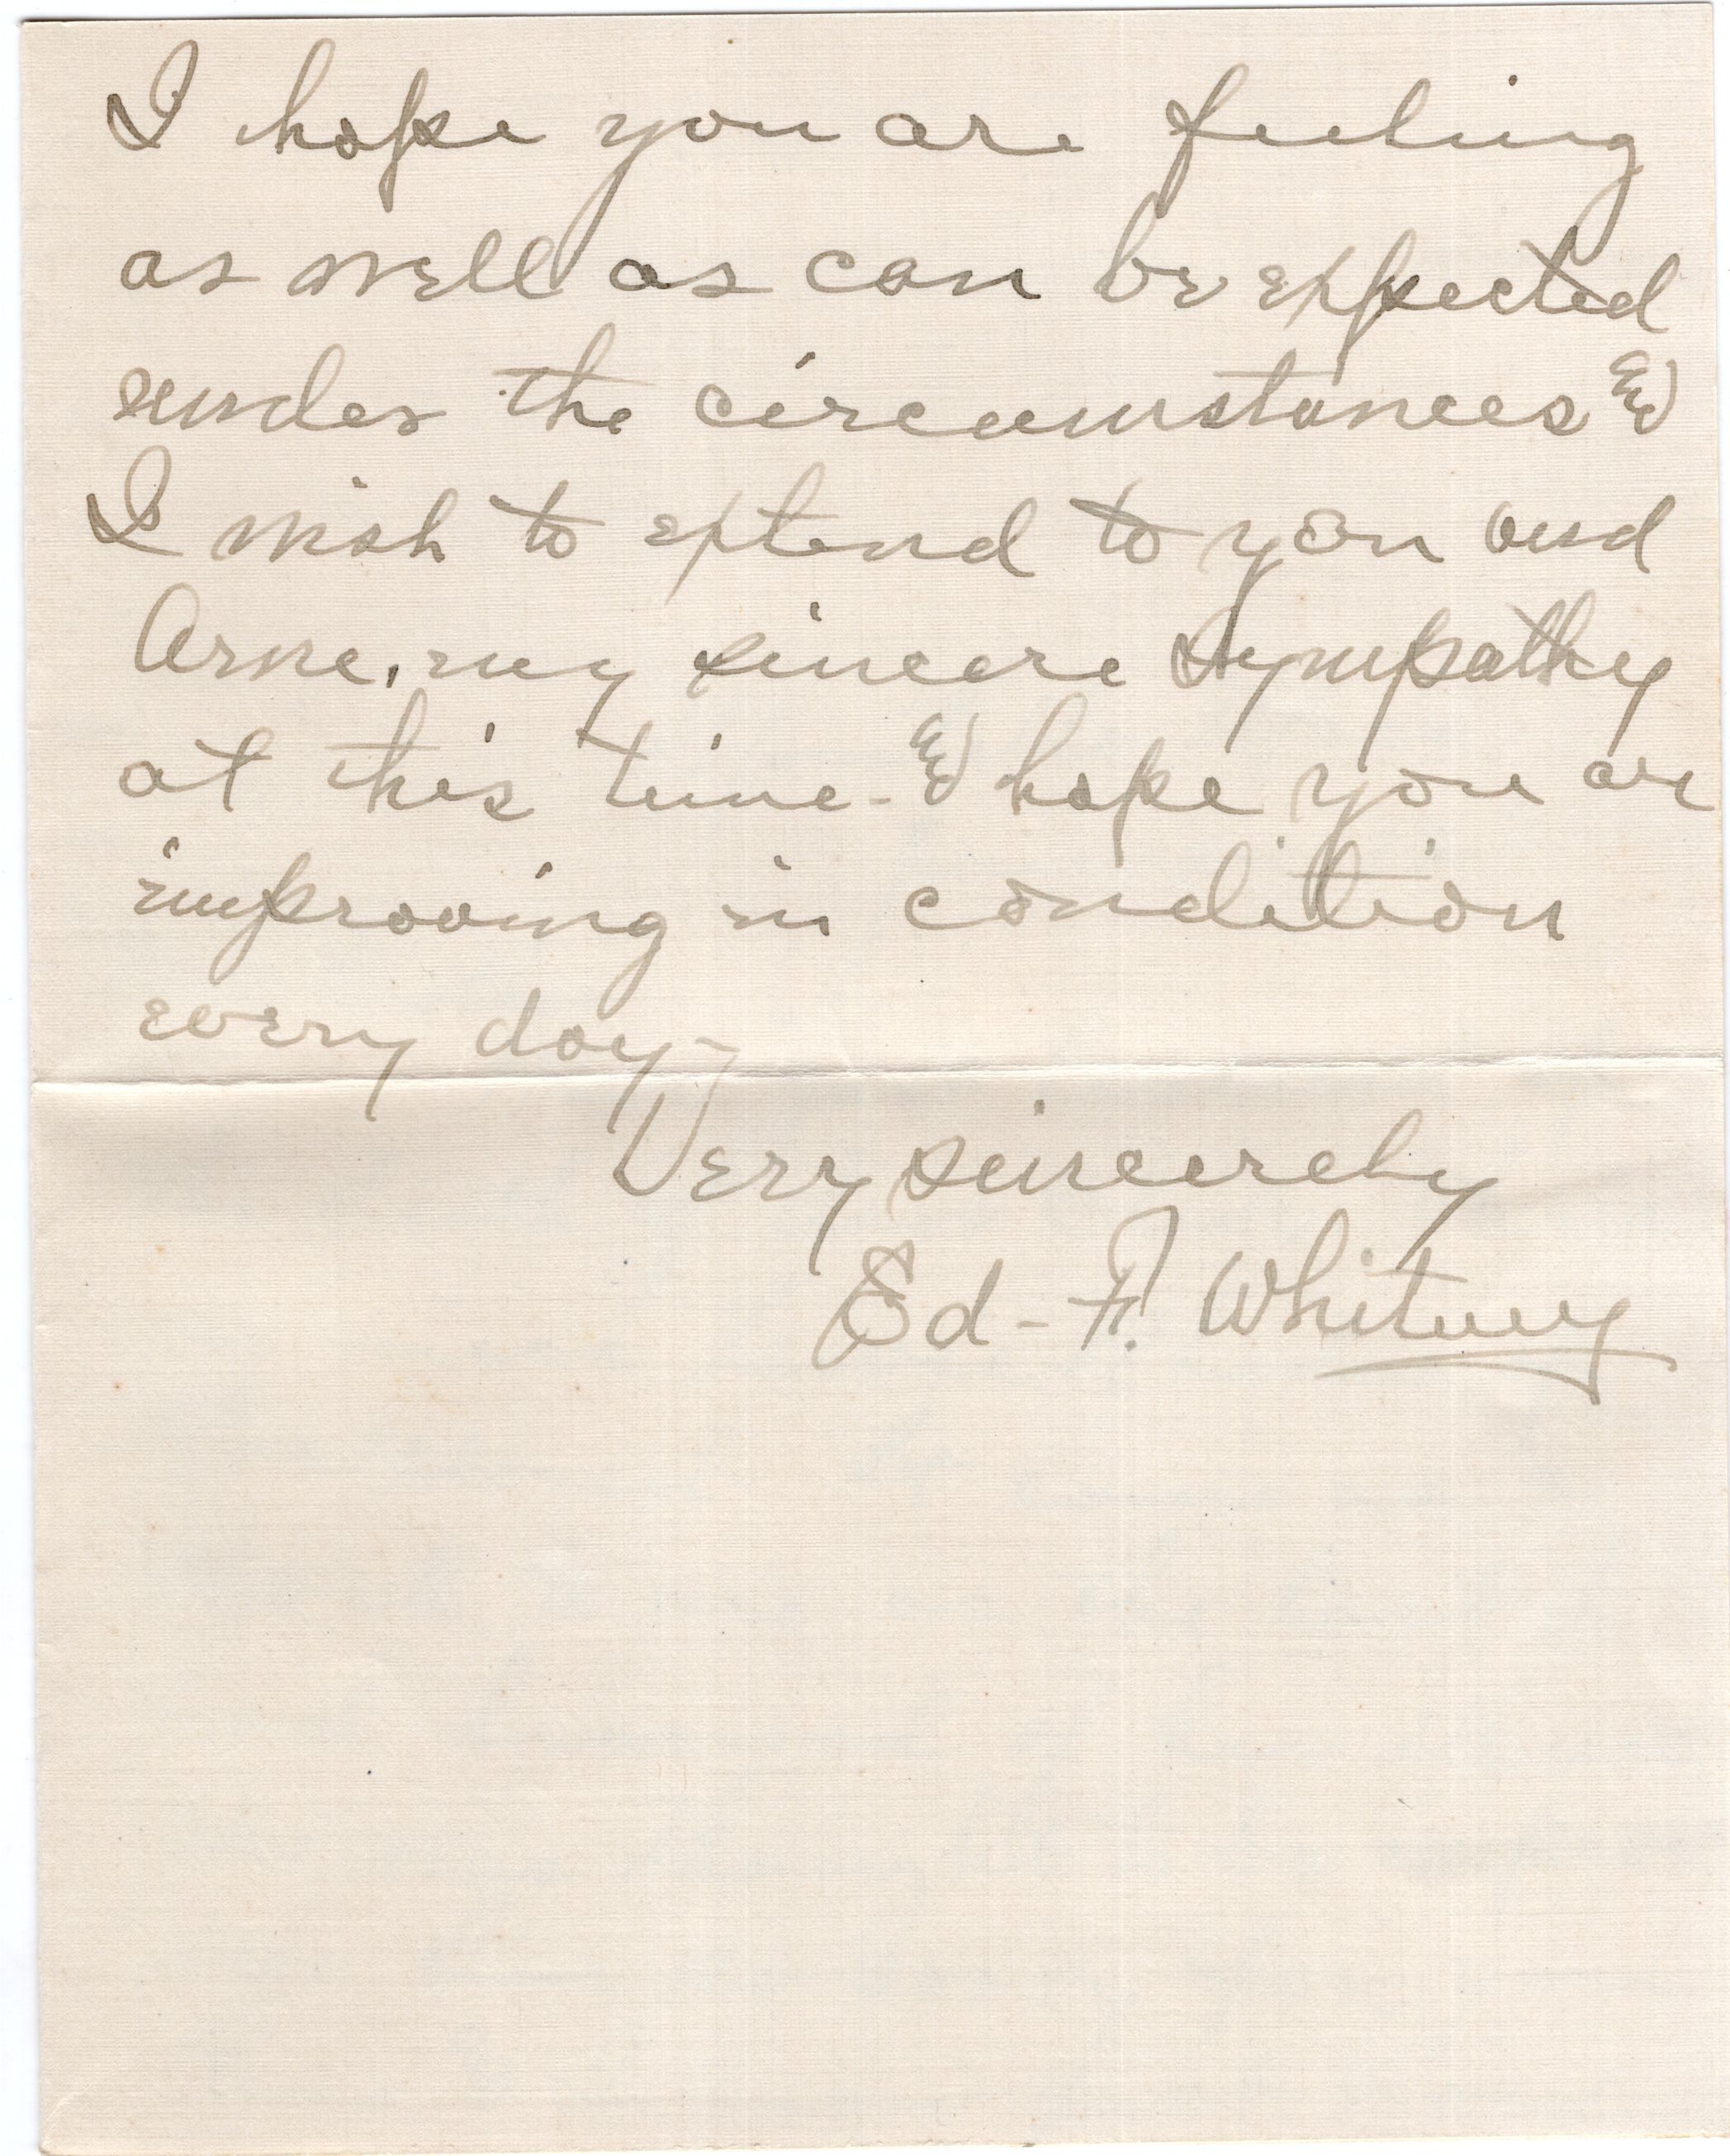 I hope you are feeling
as well as can be expected
under the circumstances &
I wish to extend to you and
Arne. my sincere sympathy
at this time - & hope you are
improving in condition
every day -
Very sincerely
Ed - F. Whitney